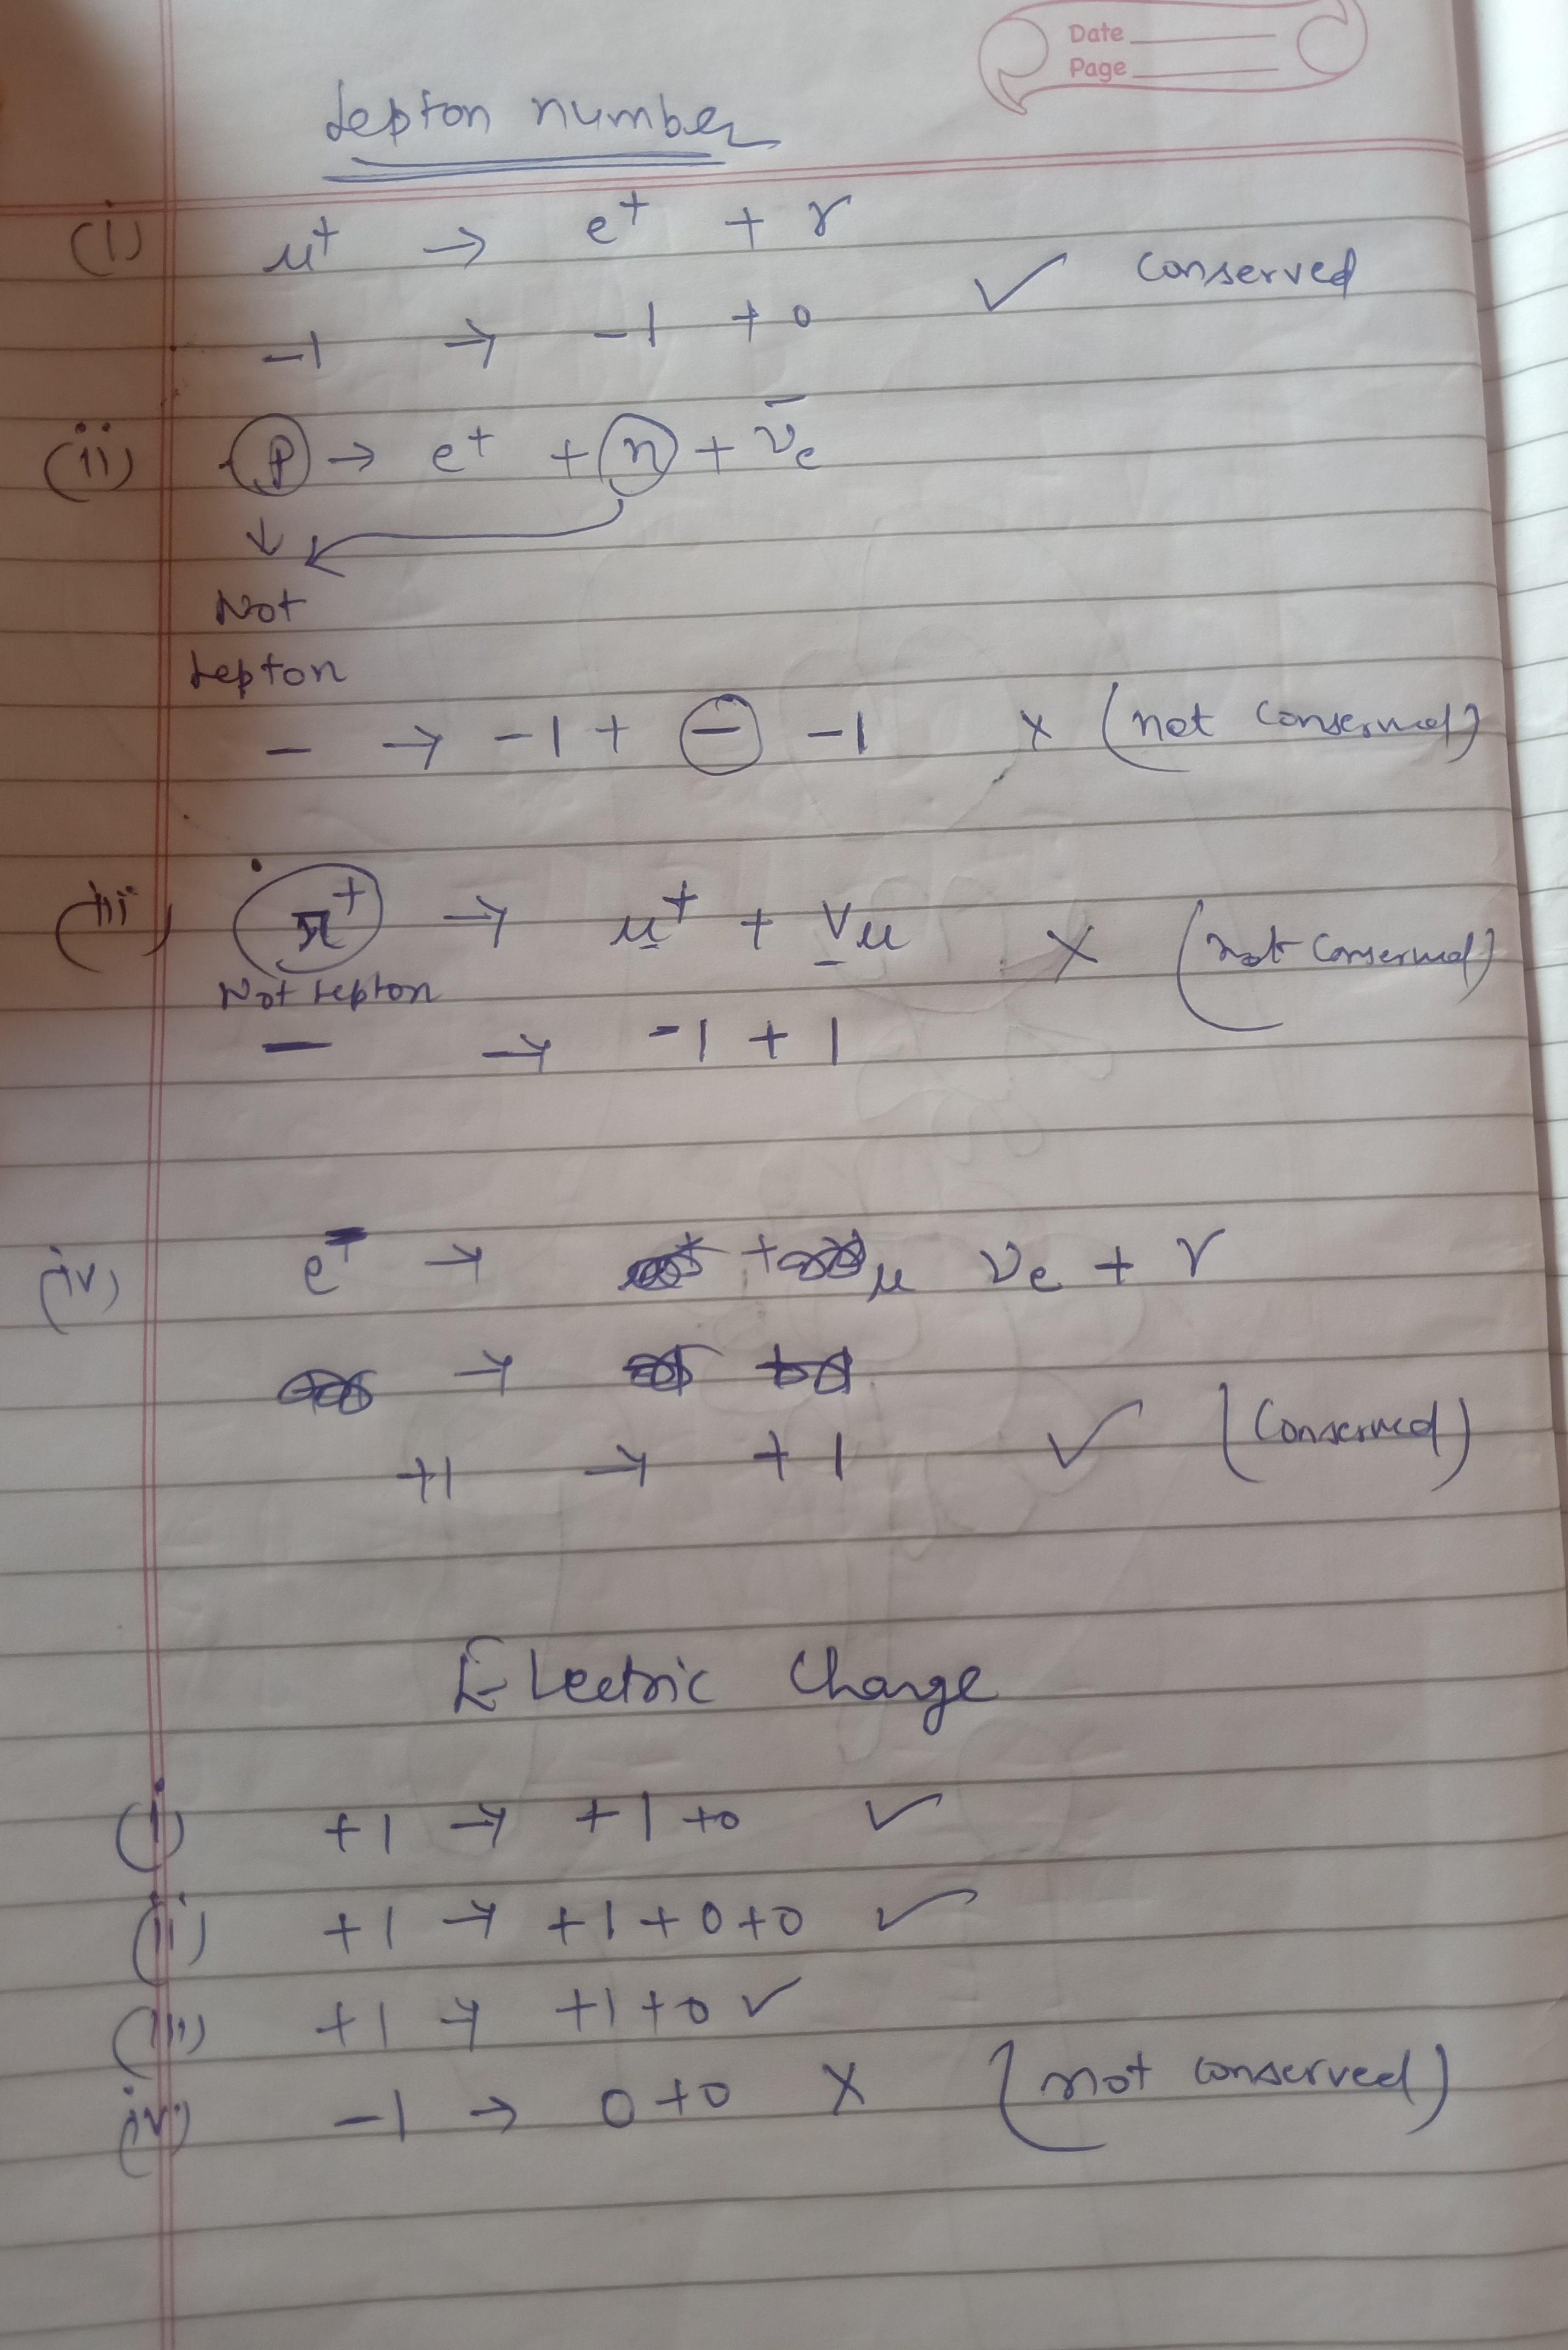 Date
Page
Lepton number
(i) μ⁺ → e⁺ + γ
-1 → -1 + 0 ✓ conserved
(ii) p → e⁺ + n + ν̄e
↓
Not
Lepton
- → -1 + - -1 × (not conserved)
(iii) π⁺ → μ⁺ + νμ × (not conserved)
Not Lepton
- → -1 + 1
(iv) e⁻ → νe + γ
→
+1 → +1 ✓ (conserved)
Electric Charge
(i) +1 → +1 +0 ✓
(ii) +1 → +1 + 0 + 0 ✓
(iii) +1 → +1 + 0 ✓
(iv) -1 → 0 + 0 × (not conserved)